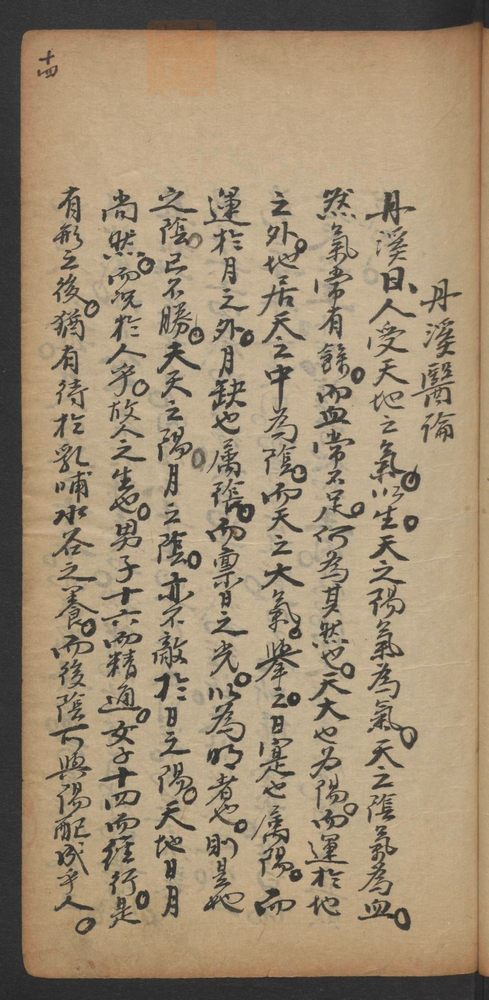 丹溪醫論
丹溪曰、人受天地之氣以生。天之陽氣為氣。天之陰氣為血。
然氣常有餘。而血常不足。何為其然也。天大也為陽。而運於地
之外。地居天之中為陰。而天之大氣舉之。日寔也属陽。而
運於月之外。月缺也属陰。而禀日之光。以為明者也。則是地
之陰。已不勝。夫天之陽。月之陰。亦不敵於日之陽。天地日月
尚然。而况於人乎。故人之生也。男子十六而精通。女子十四而經行。是
有形之後。猶有待於乳哺水谷之養。而後陰可與陽配成乎人。
十四